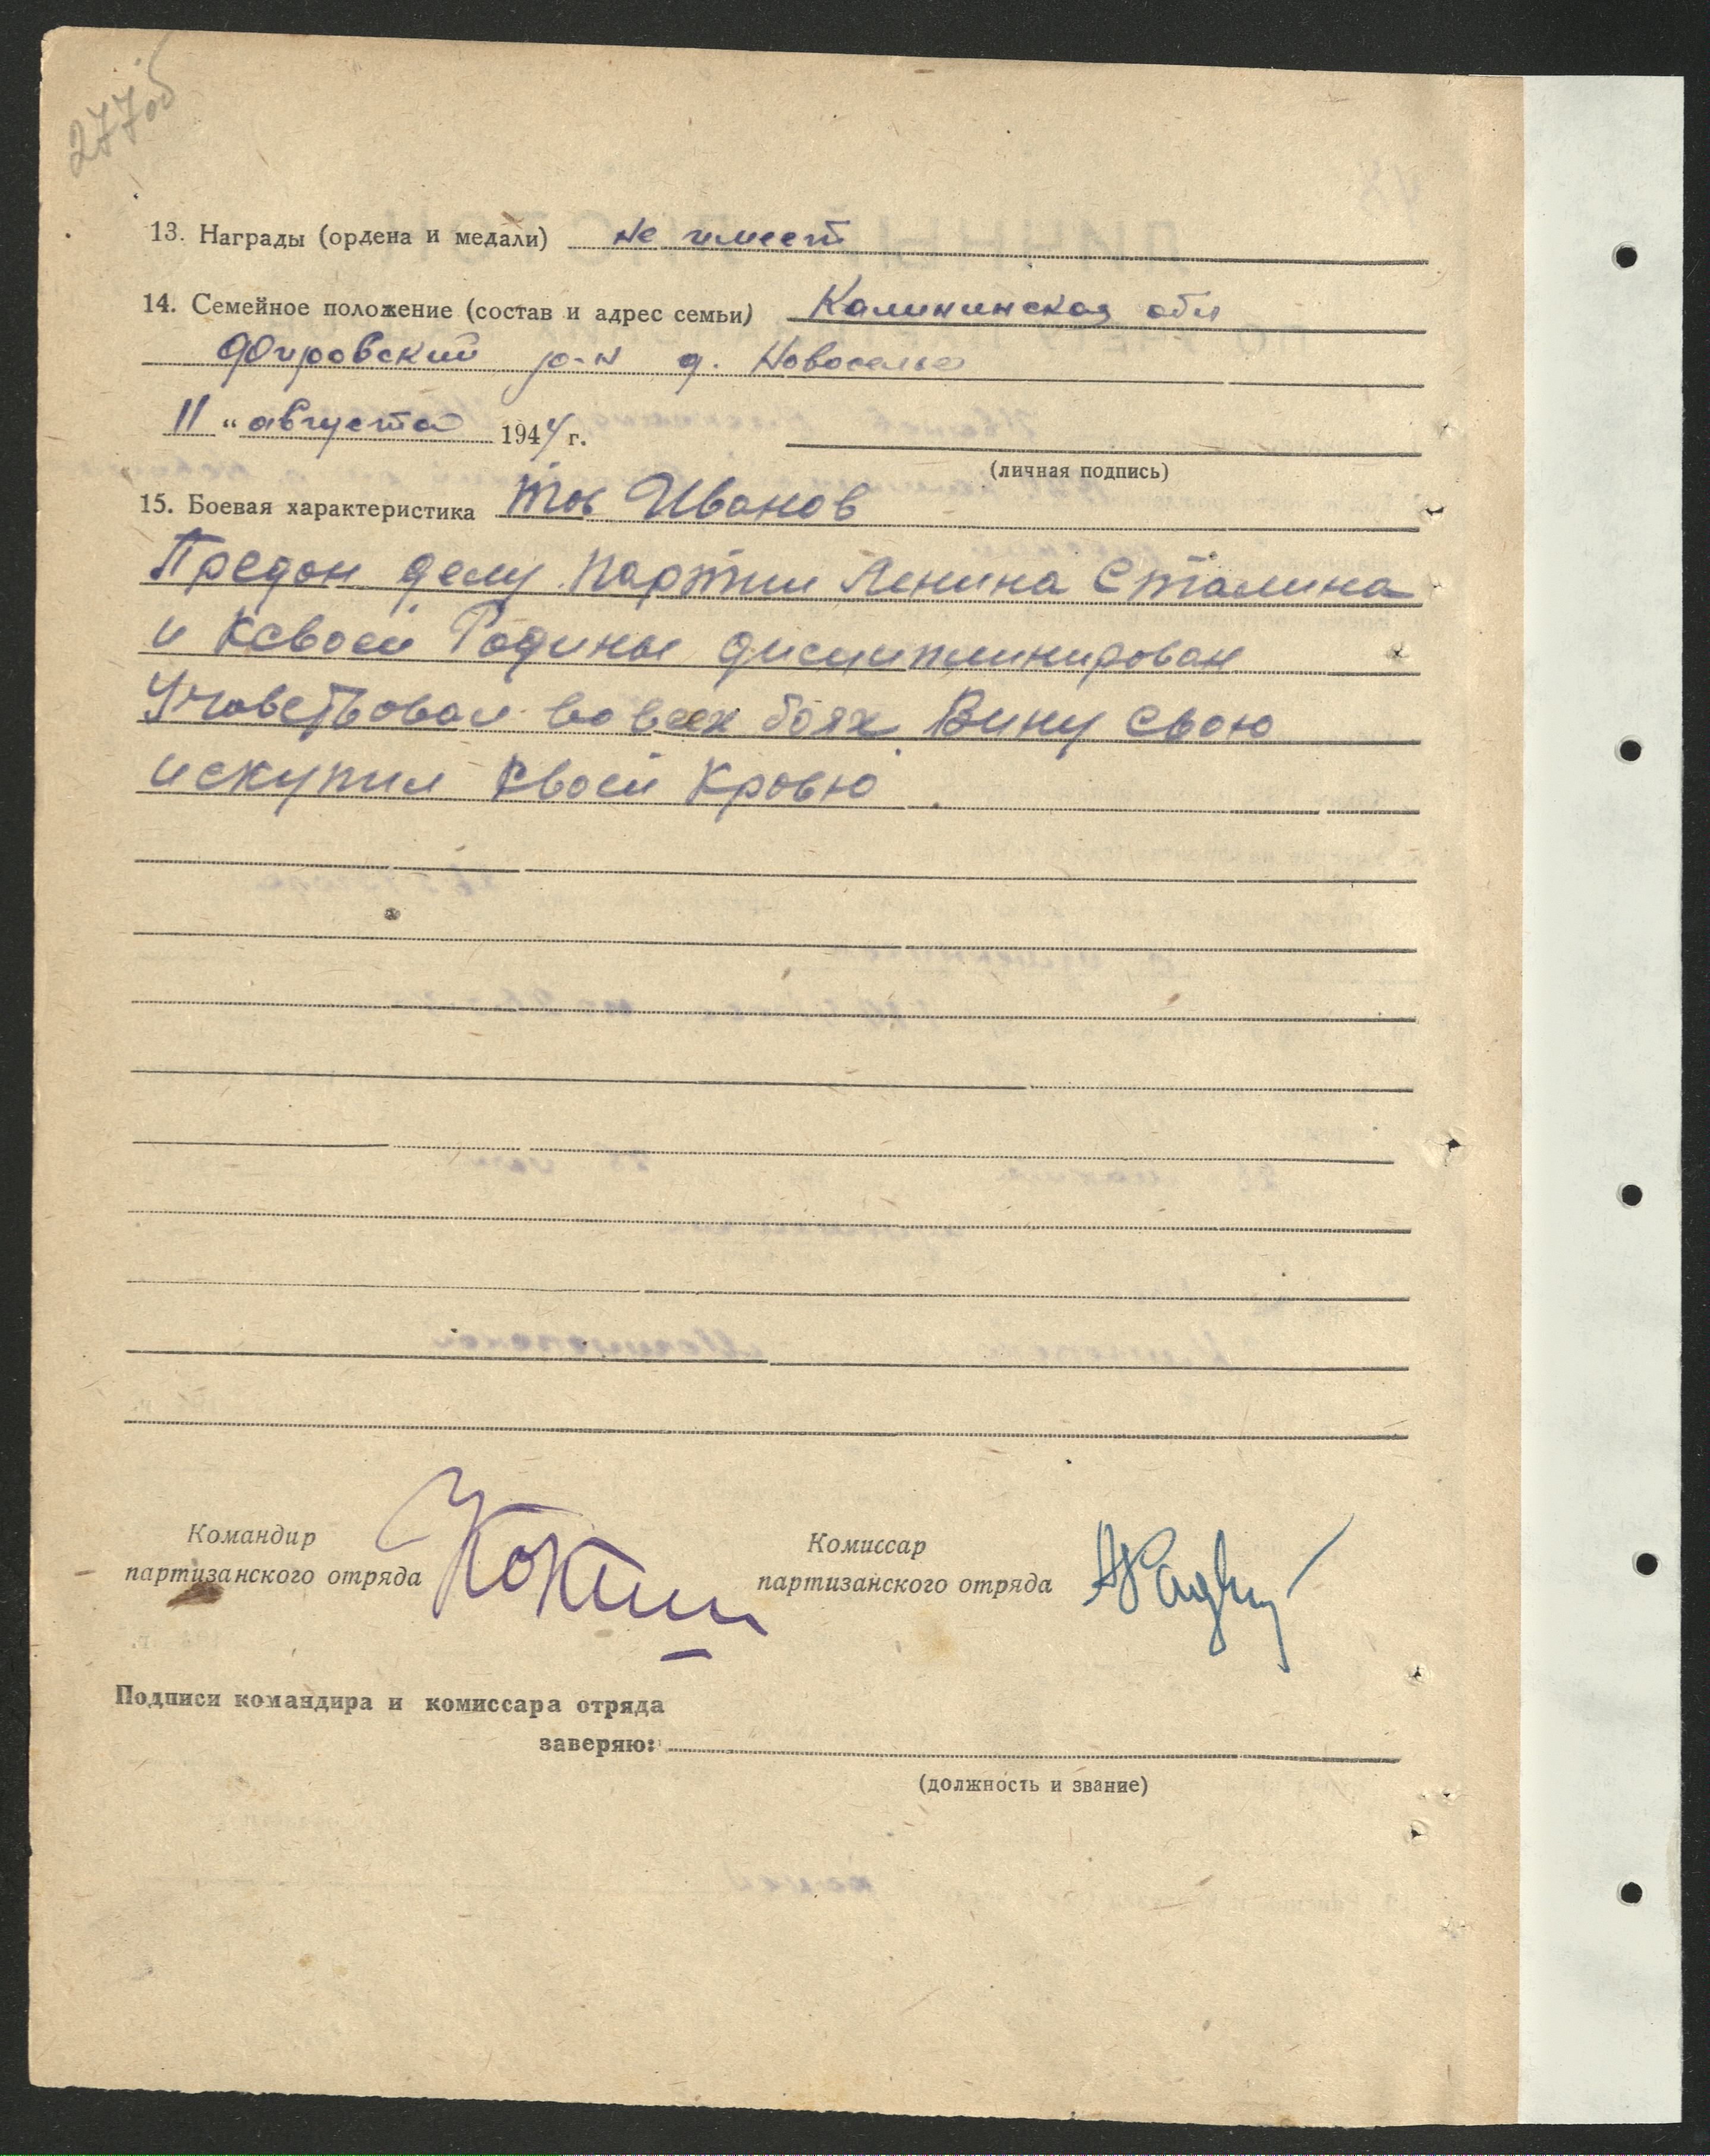 277об
13. Награды (ордена и медали) не имеет
14. Семейное положение (состав и адрес семьи) Калининская обл
Фировский р-н д. Новоселье
11 " августа 1944 г.
(личная подпись)
15. Боевая характеристика тов Иванов
Предон делу партии Ленина Сталина
и ксвоей Родины дисциплинирован
Учавствовал во всех боях Вину свою
искупил своей кровью
Командир
партизанского отряда
Комиссар
партизанского отряда
Подписи командира и комиссара отряда
заверяю:
(должность и звание)